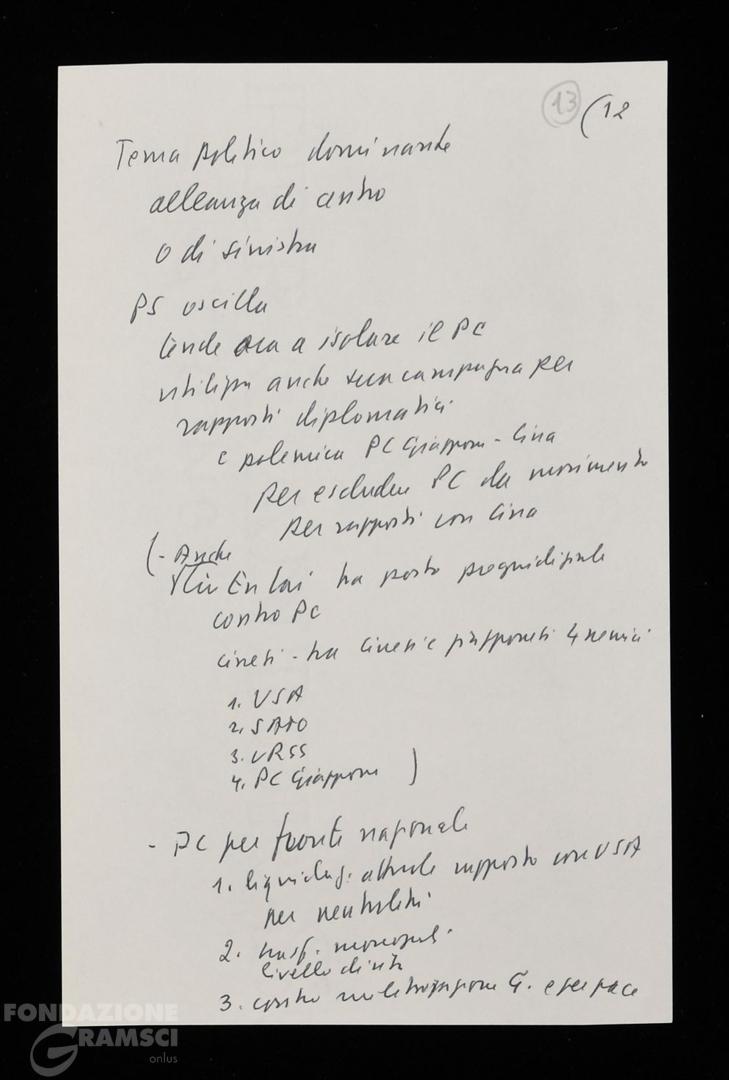 13 (12
Tema politico dominante
alleanza di centro
o di sinistra
PS oscilla
tende ora a isolare il PC
utilizza anche sua campagna per
rapporti diplomatici
e polemica PC Giappone - Cina
per escludere PC da movimento
per rapporti con Cina
(- Anche
Ciu En Lai ha posto pregiudiziale
contro PC
cinesi - tra cinesi e giapponesi 4 nemici
1. USA
2. SATO
3. URSS
4. PC Giappone )
- PC per fronte nazionale
1. liquidaz. attuale rapporto con USA
per neutralità
2. monopoli
livello di vita
3. contro militarizzazione G. e per pace
FONDAZIONE
GRAMSCI
onlus